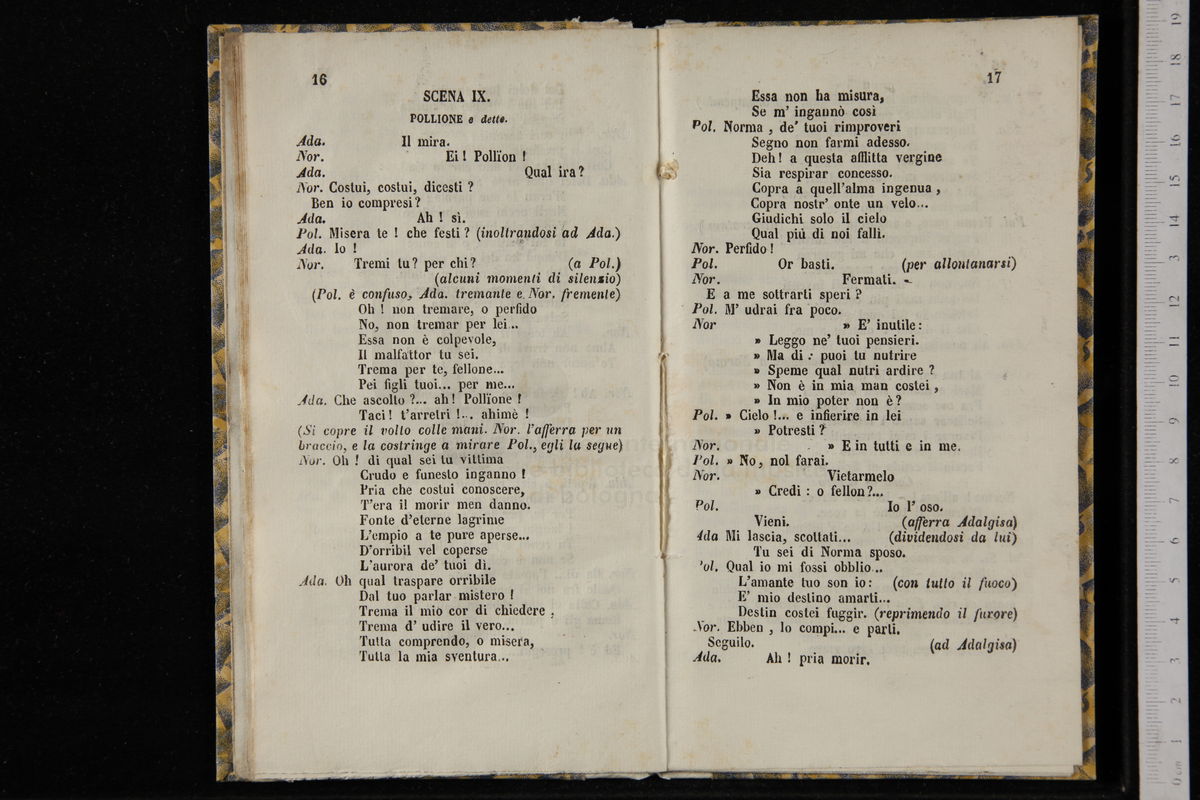 16
SCENA IX.
POLLIONE e dette.
Ada. Il mira.
Nor. Ei! Pollïon!
Ada. Qual ira?
Nor. Costui, costui, dicesti?
Ben io compresi?
Ada. Ah! sì.
Pol. Misera te! che festi? (inoltrandosi ad Ada.)
Ada. Io!
Nor. Tremi tu? per chi? (a Pol.)
(alcuni momenti di silenzio)
(Pol. è confuso, Ada. tremante e Nor. fremente)
Oh! non tremare, o perfido
No, non tremar per lei..
Essa non è colpevole,
Il malfattor tu sei.
Trema per te, fellone...
Pei figli tuoi... per me...
Ada. Che ascolto?... ah! Pollïone!
Taci! t'arretri!... ahimè!
(Si copre il volto colle mani. Nor. l'afferra per un
braccio, e la costringe a mirare Pol., egli la segue)
Nor. Oh! di qual sei tu vittima
Crudo e funesto inganno!
Pria che costui conoscere,
T'era il morir men danno.
Fonte d'eterne lagrime
L'empio a te pure aperse...
D'orribil vel coperse
L'aurora de' tuoi dì.
Ada. Oh qual traspare orribile
Dal tuo parlar mistero!
Trema il mio cor di chiedere,
Trema d' udire il vero...
Tutta comprendo, o misera,
Tutta la mia sventura...
17
Essa non ha misura,
Se m' ingannò così
Pol. Norma, de' tuoi rimproveri
Segno non farmi adesso.
Deh! a questa afflitta vergine
Sia respirar concesso.
Copra a quell'alma ingenua,
Copra nostr' onte un velo...
Giudichi solo il cielo
Qual più di noi fallì.
Nor. Perfido!
Pol. Or basti. (per allontanarsi)
Nor. Fermati.
E a me sottrarti speri?
Pol. M' udrai fra poco.
Nor » E' inutile:
» Leggo ne' tuoi pensieri.
» Ma di: puoi tu nutrire
» Speme qual nutri ardire?
» Non è in mia man costei,
» In mio poter non è?
Pol. » Cielo!... e infierire in lei
» Potresti?
Nor. » E in tutti e in me.
Pol. » No, nol farai.
Nor. Vietarmelo
» Credi: o fellon?...
Pol. Io l' oso.
Vieni. (afferra Adalgisa)
Ada Mi lascia, scottati... (dividendosi da lui)
Tu sei di Norma sposo.
Pol. Qual io mi fossi obblio..
L'amante tuo son io: (con tutto il fuoco)
E' mio destino amarti...
Destin costei fuggir. (reprimendo il furore)
Nor. Ebben, lo compi... e parti.
Seguilo. (ad Adalgisa)
Ada. Ah! pria morir.